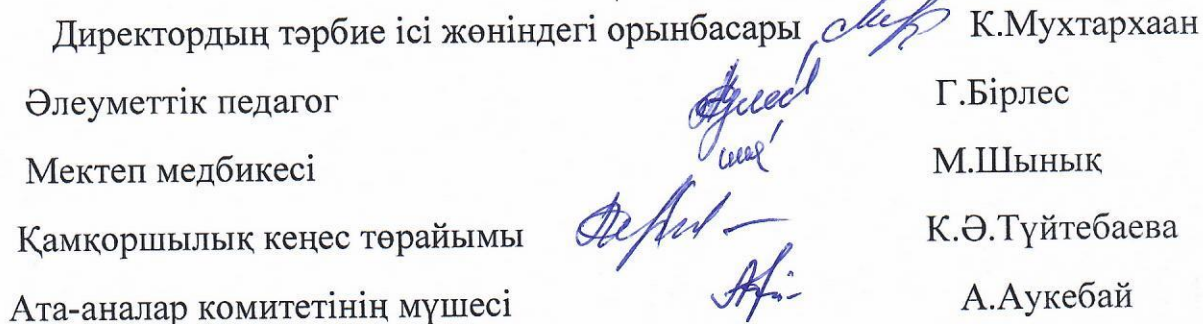 Директордың тәрбие ісі жөніндегі орынбасары К.Мухтархаан
Әлеуметтік педагог Г.Бірлес
Мектеп медбикесі М.Шынық
Қамқоршылық кеңес төрайымы К.Ә.Түйтебаева
Ата-аналар комитетінің мүшесі А.Аукебай